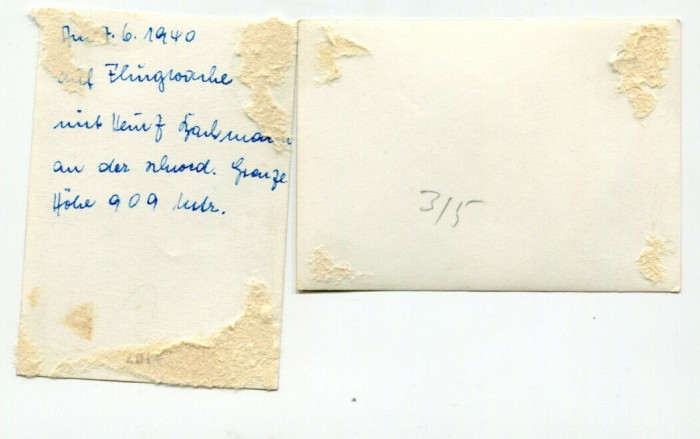 Am 7. 6. 1940
auf Flugwache
mit Heinz
an der Grenze
Höhe 909 Mtr.
3/5